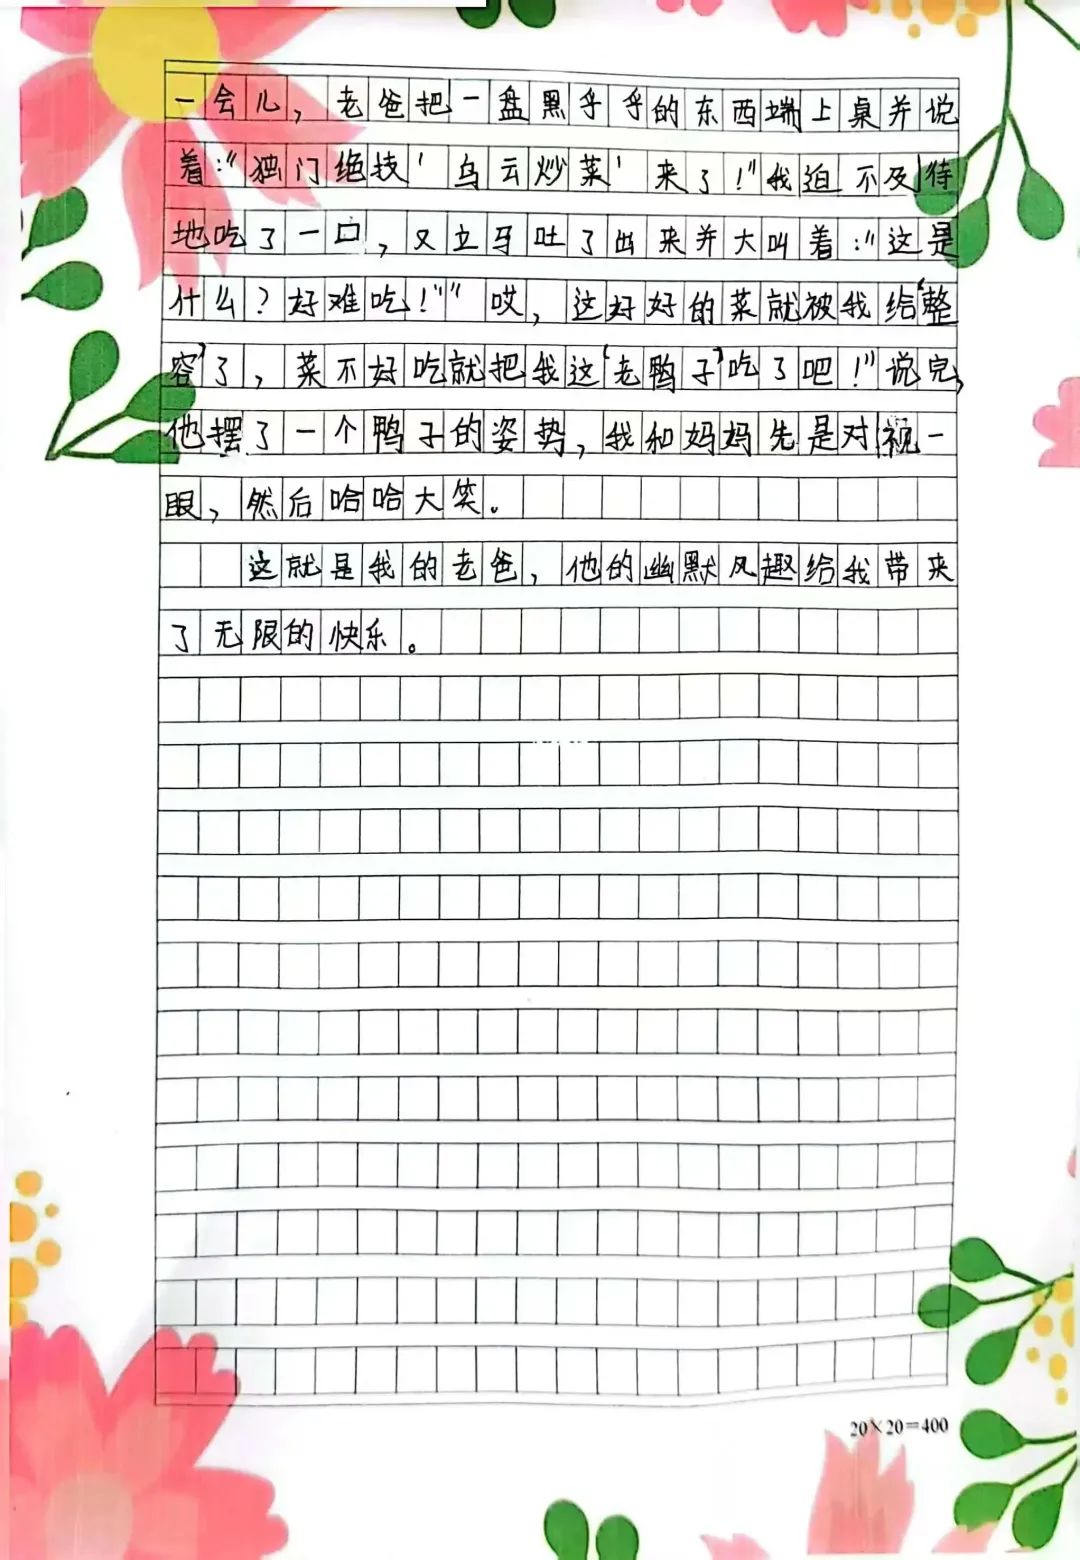 一会儿，老爸把一盘黑乎乎的东西端上桌并说
着：“独门绝技‘乌云炒菜’来了！”我迫不及待
地吃了一口，又立牙吐了出来并大叫着：“这是
什么？好难吃！”“哎，这好好的菜就被我给‘整
容’了，菜不好吃就把我这‘老鸭子’吃了吧！”说完，
他摆了一个鸭子的姿势，我和妈妈先是对视一
眼，然后哈哈大笑。
这就是我的老爸，他的幽默风趣给我带来
了无限的快乐。
20×20=400